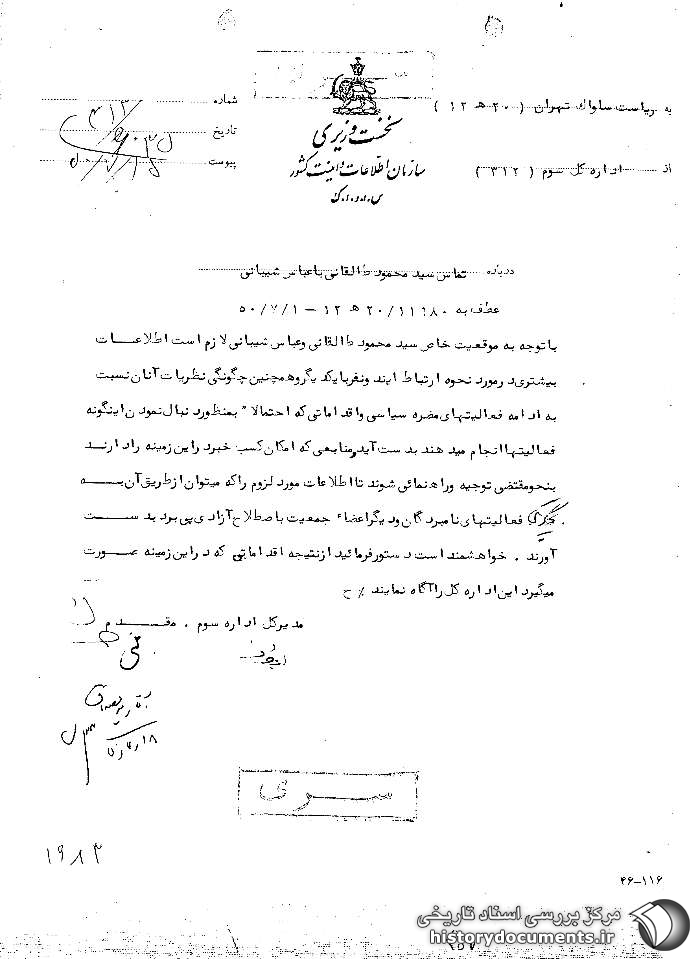 به ریاست ساواک تهران ( ۲۰ هـ ۱۲ )
از اداره کل سوم ( ۳۱۲ )
نخست وزیری
سازمان اطلاعات و امنیت کشور
س.ا.و.ا.ک
شماره
تاریخ
پیوست
درباره تماس سید محمود طالقانی با عباس شیبانی
عطف به ۲۰/۱۱۹۸۰ هـ ۱۲ - ۵۰/۷/۱
با توجه به موقعیت خاص سید محمود طالقانی و عباس شیبانی لازم است اطلاعات
بیشتری در مورد نحوه ارتباط ایندو نفر با یکدیگر و همچنین چگونگی نظریات آنان نسبت
به ادامه فعالیتهای مضره سیاسی و اقداماتی که احتمالا" بمنظور دنبال نمودن اینگونه
فعالیتها انجام میدهند بدست آید و منابعی که امکان کسب خبر در این زمینه را دارند
بنحو مقتضی توجیه و راهنمائی شوند تا اطلاعات مورد لزوم را که میتوان از طریق آن به
فعالیتهای نامبردگان و دیگر اعضاء جمعیت باصطلاح آزادی پی برد بدست
آورند . خواهشمند است دستور فرمائید از نتیجه اقداماتی که در این زمینه صورت
میگیرد این اداره کل را آگاه نمایند ٪ ح
مدیرکل اداره سوم . مقدم
سری
۱۹۸۳
۴۶-۱۱۶
مرکز بررسی اسناد تاریخی
historydocuments.ir